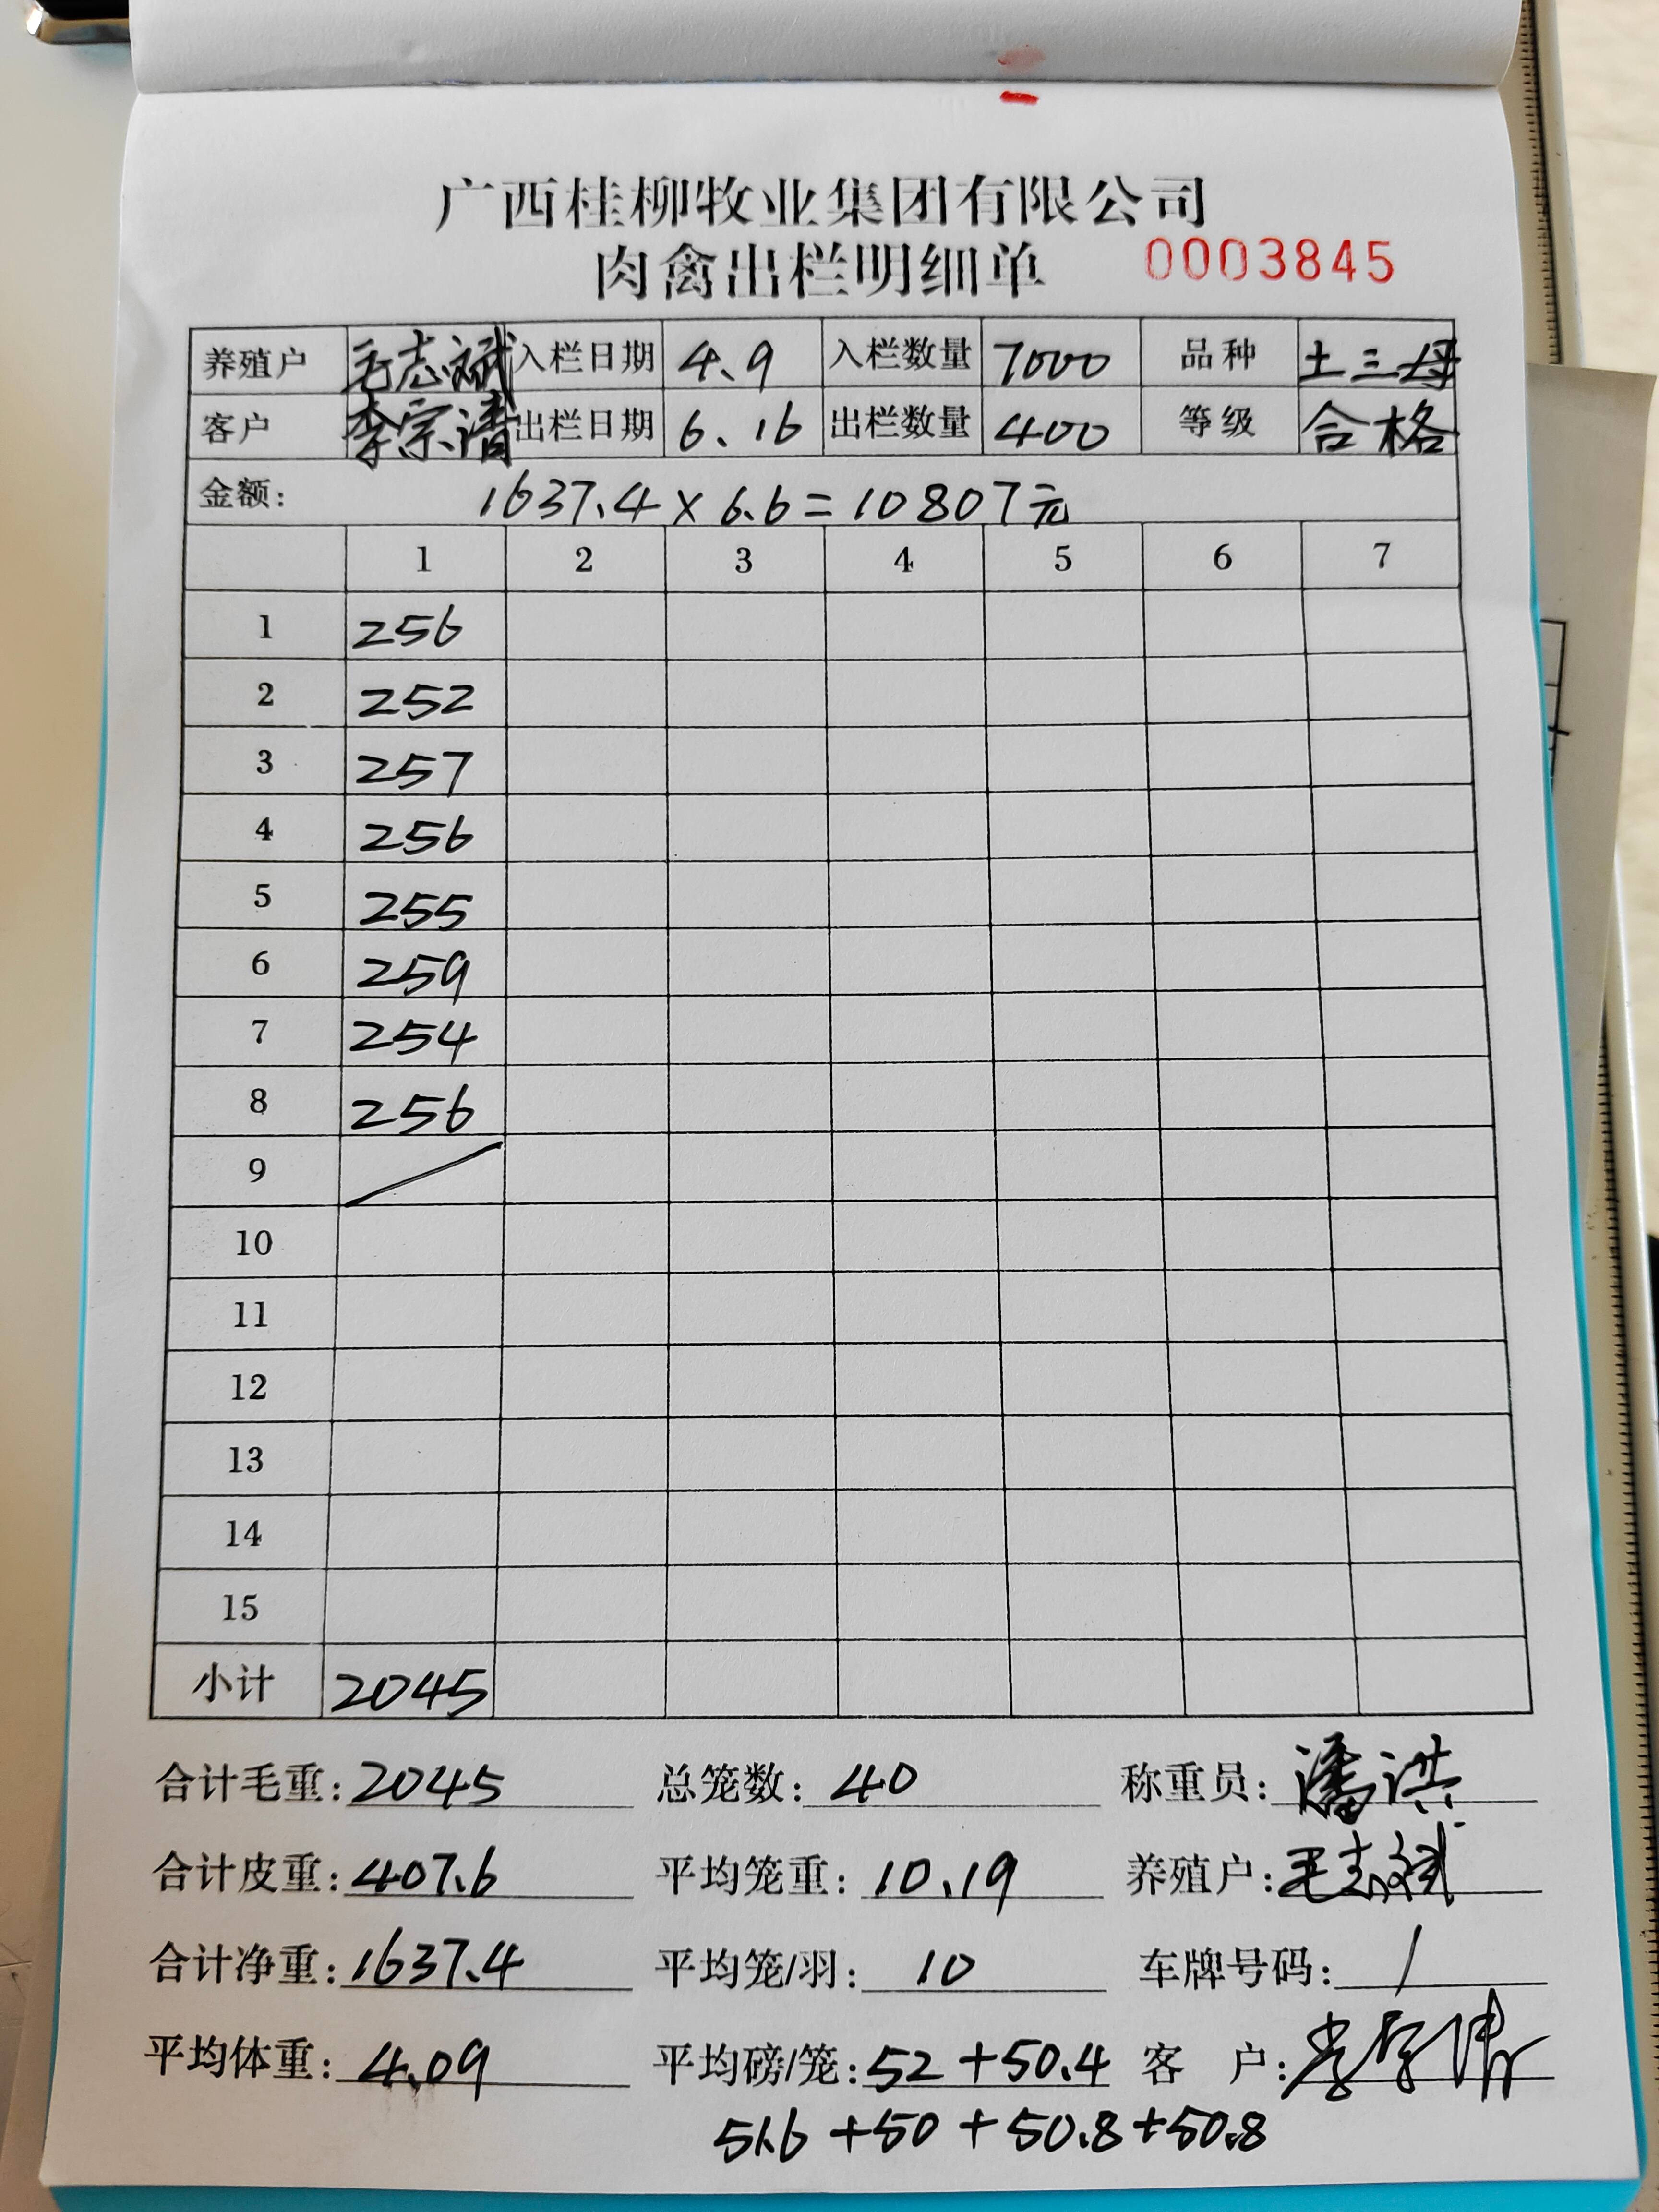 广西桂柳牧业集团有限公司
肉禽出栏明细单 0003845
养殖户 毛志斌 入栏日期 4.9 入栏数量 7000 品种 土三母
客户 李宗清 出栏日期 6.16 出栏数量 400 等级 合格
金额: 1637.4×6.6=10807元
1 2 3 4 5 6 7
1 256
2 252
3 257
4 256
5 255
6 259
7 254
8 256
9
10
11
12
13
14
15
小计 2045
合计毛重: 2045 总笼数: 40 称重员: 潘洪
合计皮重: 407.6 平均笼重: 10.19 养殖户: 毛志斌
合计净重: 1637.4 平均笼/羽: 10 车牌号码: /
平均体重: 4.09 平均磅/笼: 52+50.4 客 户:
51.6+50+50.8+50.8